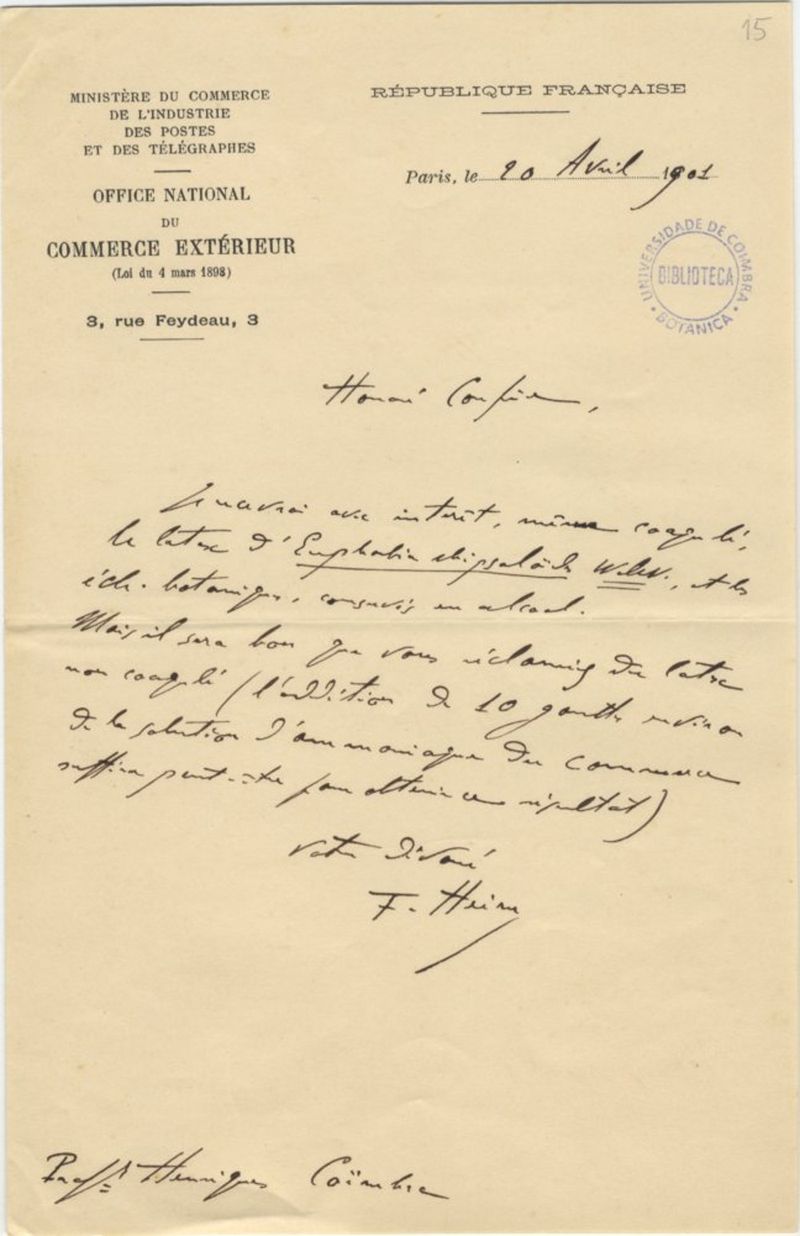 15
MINISTÈRE DU COMMERCE
DE L'INDUSTRIE
DES POSTES
ET DES TÉLÉGRAPHES
OFFICE NATIONAL
DU
COMMERCE EXTÉRIEUR
(Loi du 4 mars 1898)
3, rue Feydeau, 3
RÉPUBLIQUE FRANÇAISE
Paris, le 20 Avril 1901
UNIVERSIDADE DE COIMBRA
BIBLIOTECA
BOTANICA
Honoré Confrère,
Je recevrai avec intérêt, même coagulé,
le latex d'Euphorbia rhipsaloides Welw., et les
éch. botaniques, conservés en alcool.
Mais il sera bon que vous réclamiez du latex
non coagulé (l'addition de 10 gouttes environ
de la solution d'ammoniaque du commerce
suffira peut-être pour obtenir ce résultat)
Votre dévoué
F. Heim
Profr Henriques Coïmbra